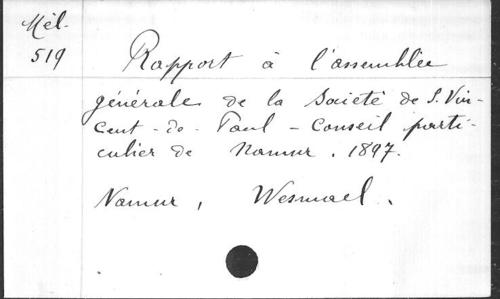 Mél.
519
Rapport à l'assemblée
générale de la Société de S. Vin-
cent-de-Paul - Conseil parti-
culier de Namur. 1897.
Namur, Wesmael.